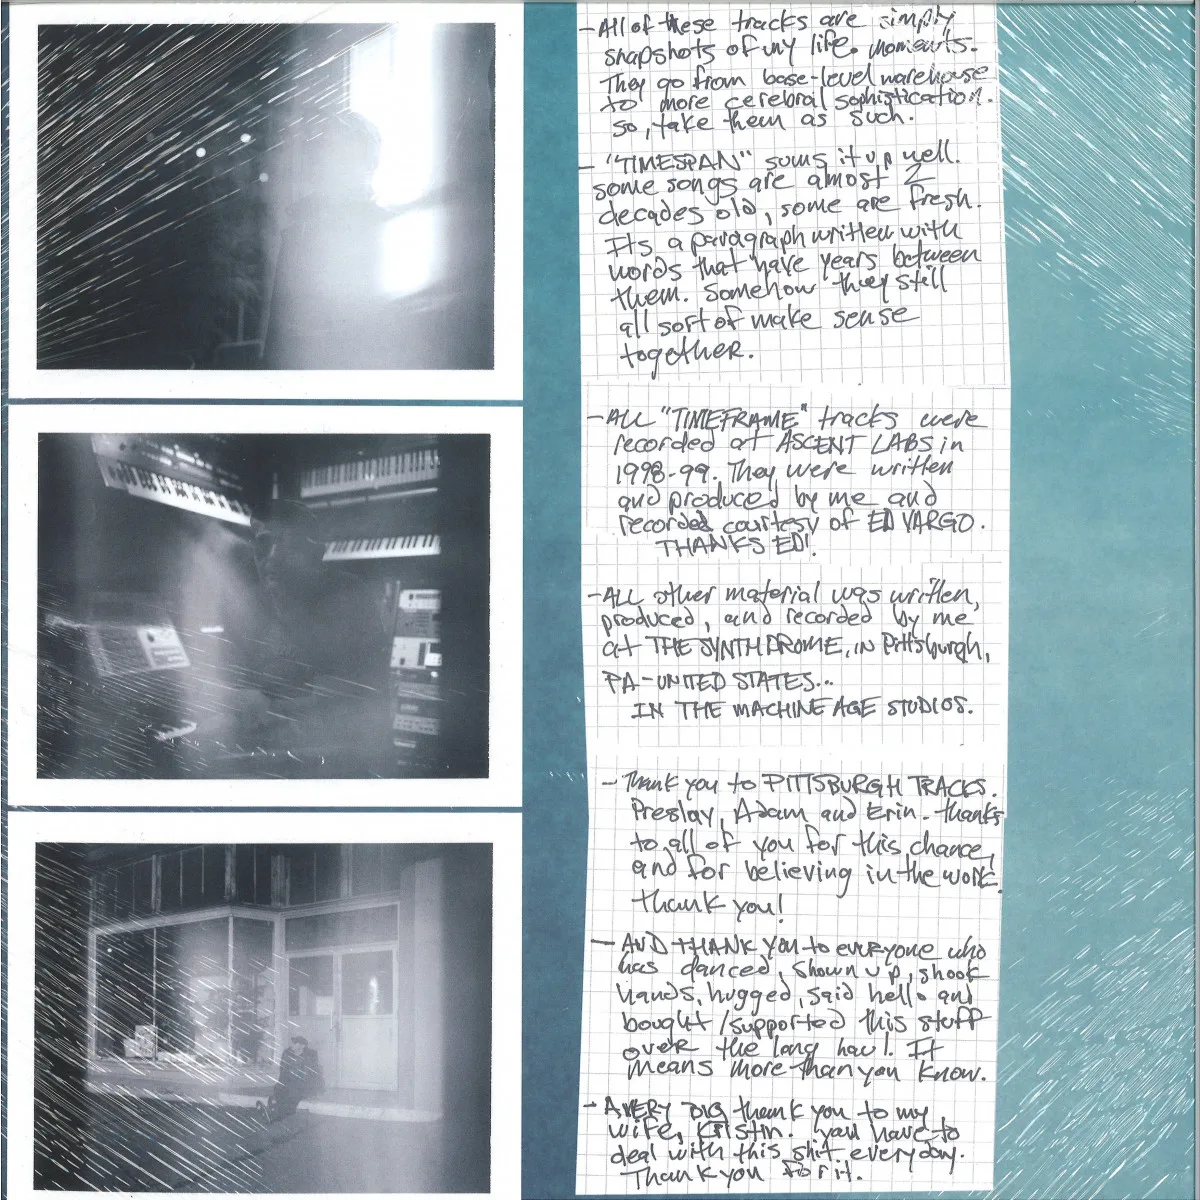 - All of these tracks are simply
snapshots of my life. moments.
They go from base-level warehouse
to more cerebral sophistication.
so, take them as such.
- "TIMESPAN" sums it up well.
some songs are almost 2
decades old, some are fresh.
Its a paragraph written with
words that have years between
them. Somehow they still
all sort of make sense
together.
- ALL "TIMEFRAME" tracks were
recorded at ASCENT LABS in
1998-99. They were written
and produced by me and
recorded courtesy of ED VARGO.
THANKS ED!
- ALL other material was written,
produced, and recorded by me
at THE SYNTHDROME, IN Pittsburgh,
PA-UNITED STATES...
IN THE MACHINE AGE STUDIOS.
- Thank you to PITTSBURGH TRACKS.
Preslay, Adam and Erin. thanks
to all of you for this chance,
and for believing in the work.
thank you!
- AND THANK you to everyone who
has danced, shown up, shook
hands, hugged, said hello and
bought/supported this stuff
over the long haul. It
means more than you know.
- A VERY BIG thank you to my
wife, Kristin. you have to
deal with this shit everyday.
Thank you for it.